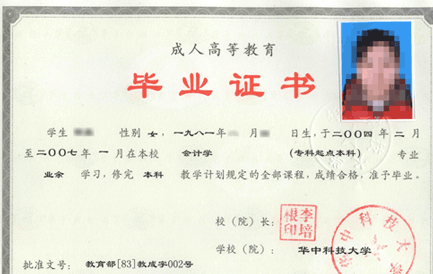 成人高等教育
毕业证书
学生 性别 女，一九八一年 月 日生，于二〇〇四年 二月
至二〇〇七年 一月在本校 会计学 (专科起点本科) 专业
业余 学习，修完 本科 教学计划规定的全部课程，成绩合格，准予毕业。
校（院）长： 李培根印
学校（院）： 华中科技大学
批准文号： 教育部[83]教成字002号